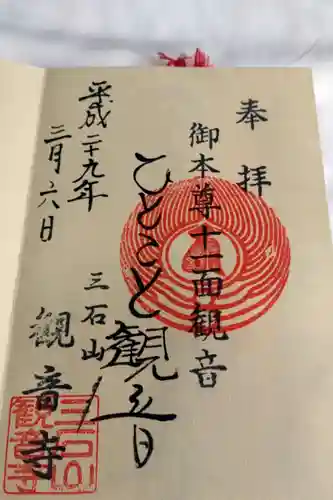 奉拝
御本尊十一面観音
ひとこと観音
三石山
観音寺
平成二十九年
三月六日
三石山
観音寺